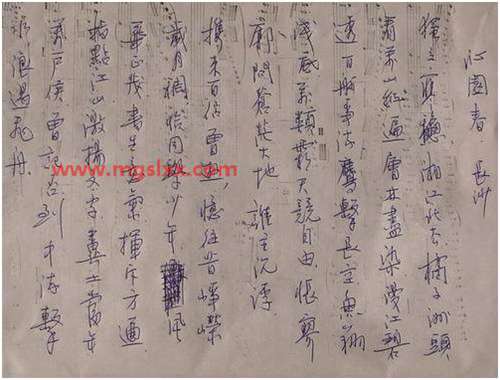 沁園春 長沙
獨立寒秋 湘江北去 橘子洲頭
看萬山紅遍 層林盡染 漫江碧
透 百舸爭流 鷹擊長空 魚翔
淺底 萬類霜天競自由 悵寥
廓 問蒼茫大地 誰主沉浮
攜來百侶曾遊，憶往昔崢嶸
歲月稠 恰同學少年 風
華正茂 書生意氣 揮斥方遒
指點江山 激揚文字 糞土當年
萬戶侯 曾記否 到中流擊
水 浪遏飛舟
www.mgslxx.com